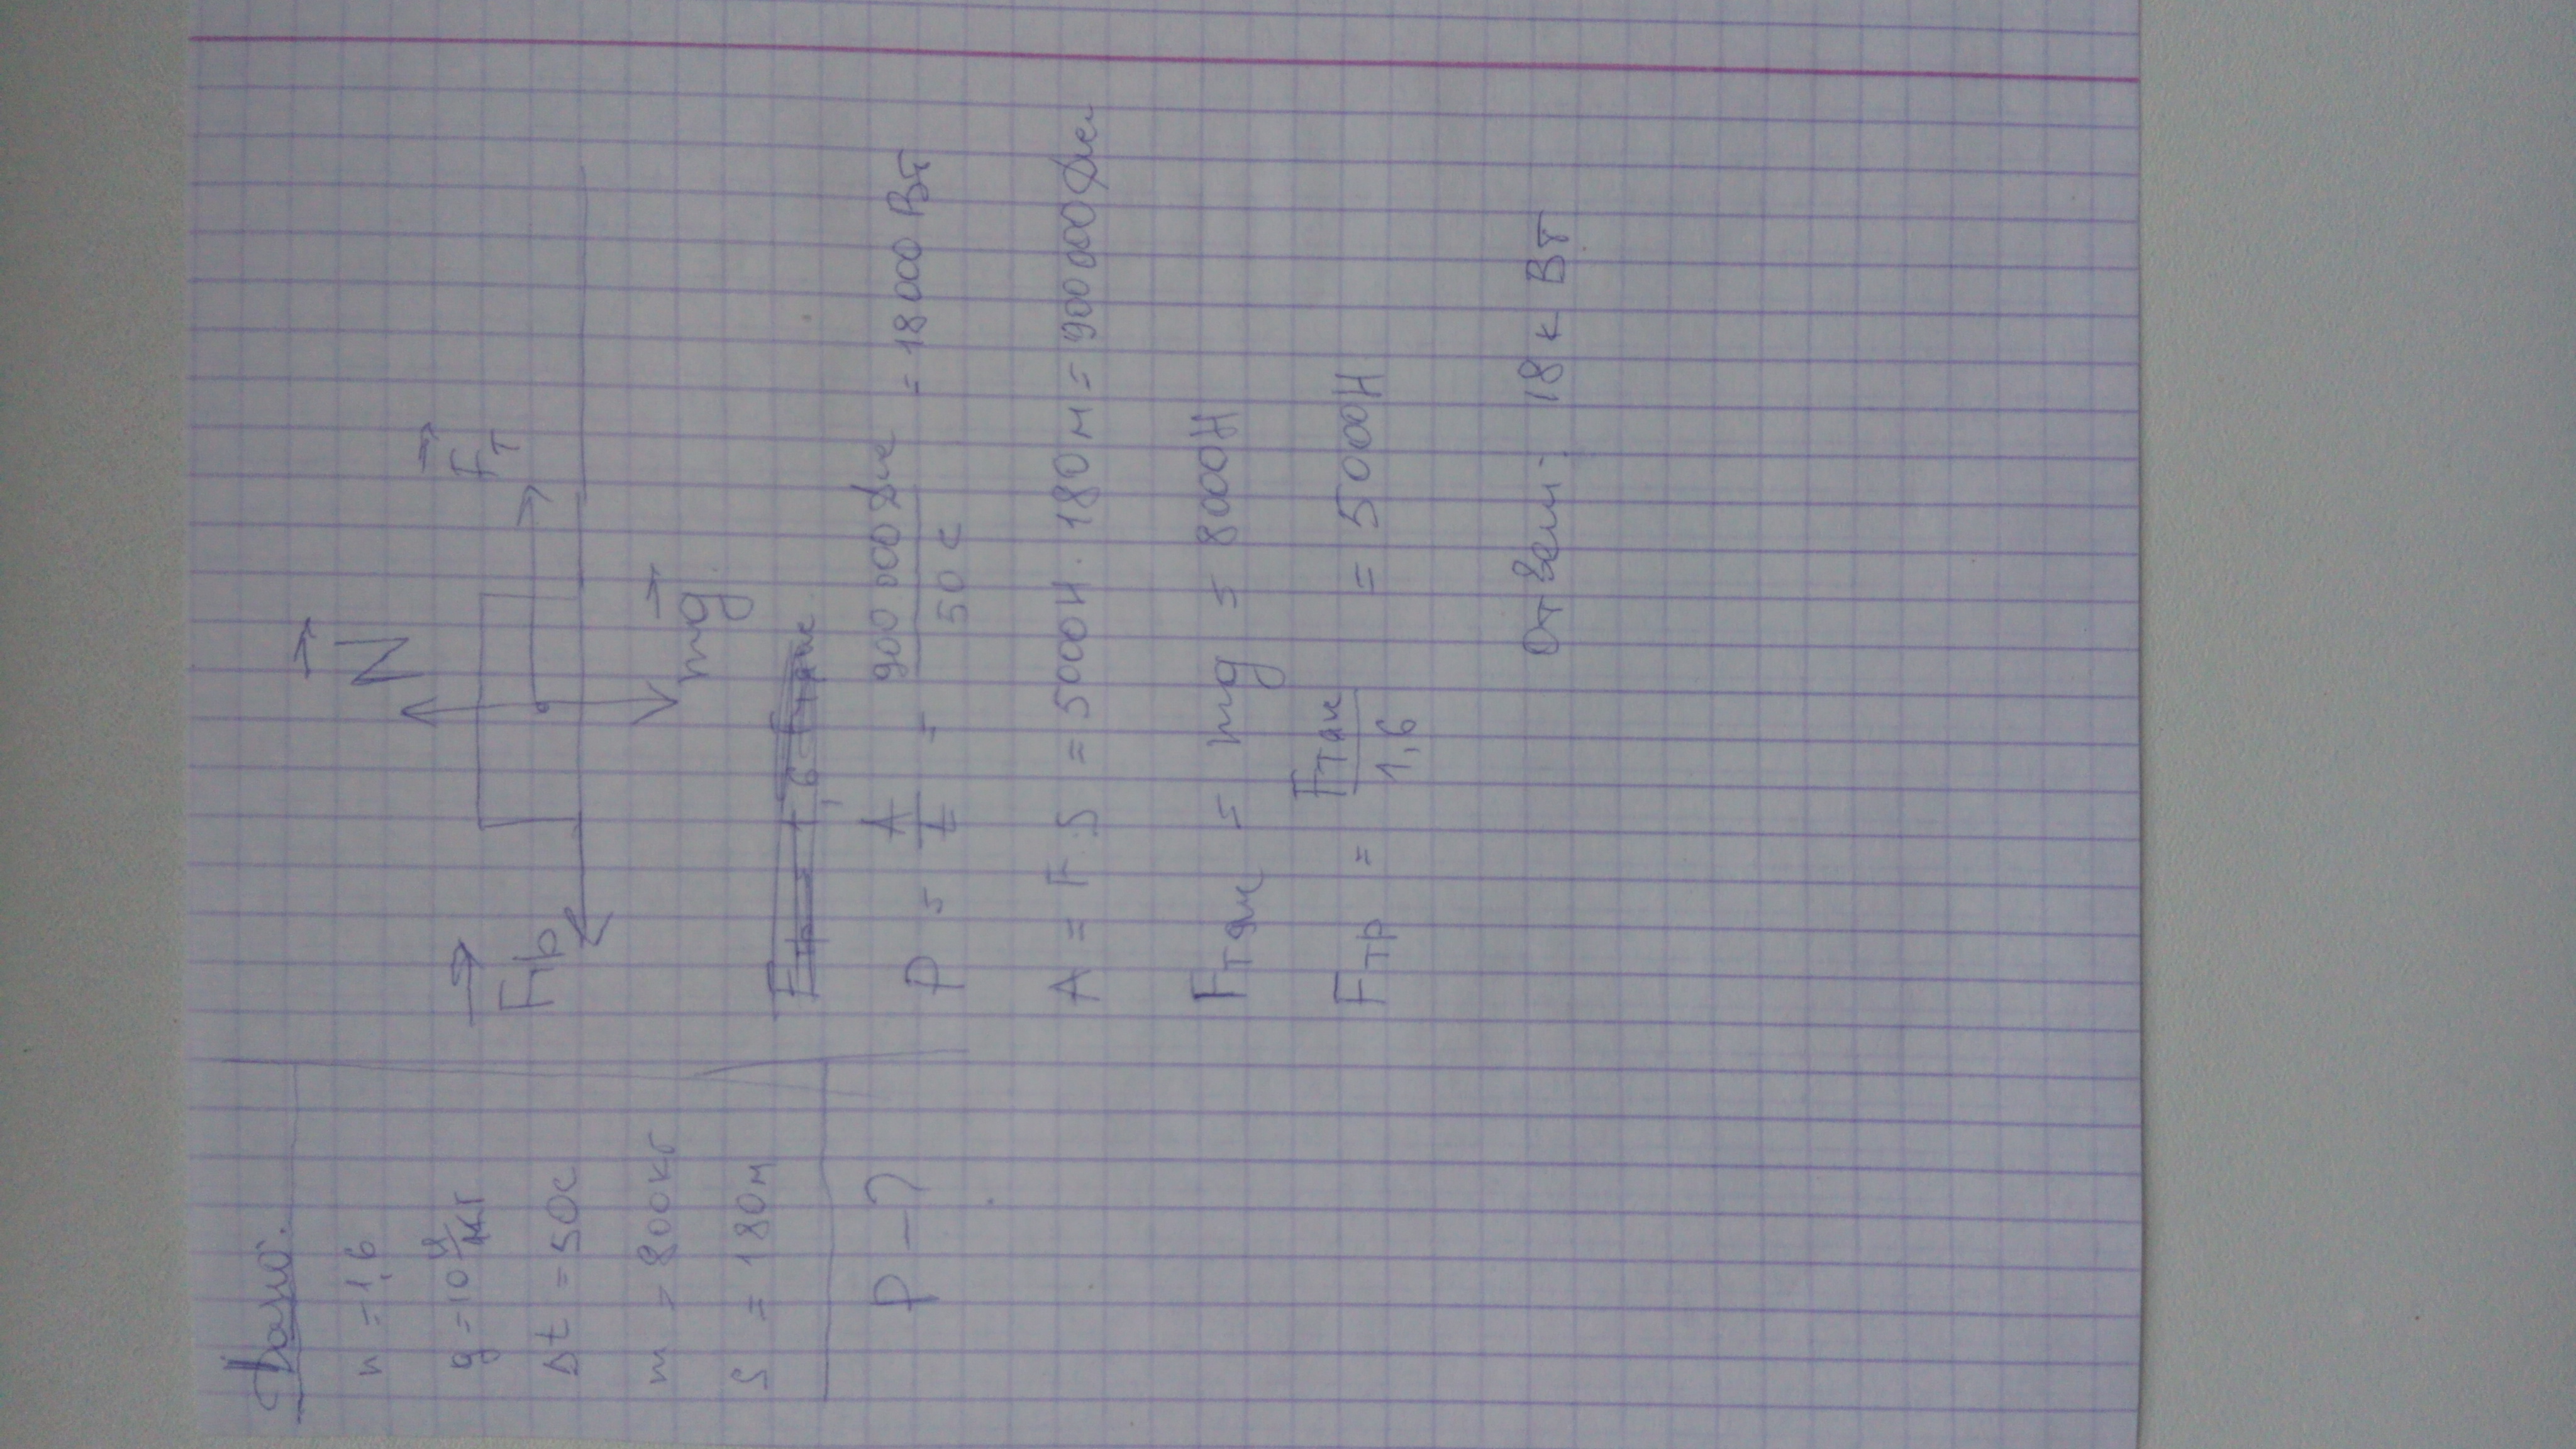 Дано:
n = 1,6
g = 10 Н/кг
Δt = 50с
m = 800кг
S = 180м
P – ?
N
Fтр
Fт
mg
P = A/t = 900 000 Дж / 50 с = 18 000 Вт
A = F·S = 5000Н · 180м = 900 000 Дж
Fтяж = mg = 8000Н
Fтр = Fтяж / 1,6 = 5000Н
Ответ: 18 кВт